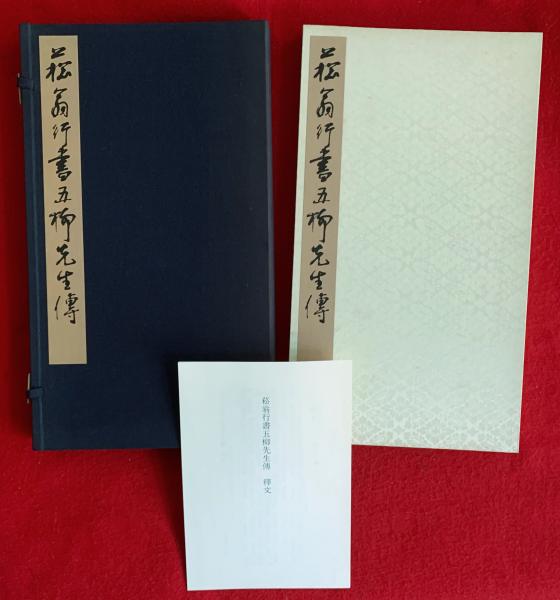 菘翁行書五柳先生傳
菘翁行書五柳先生傳
菘翁行書五柳先生傳　釋文